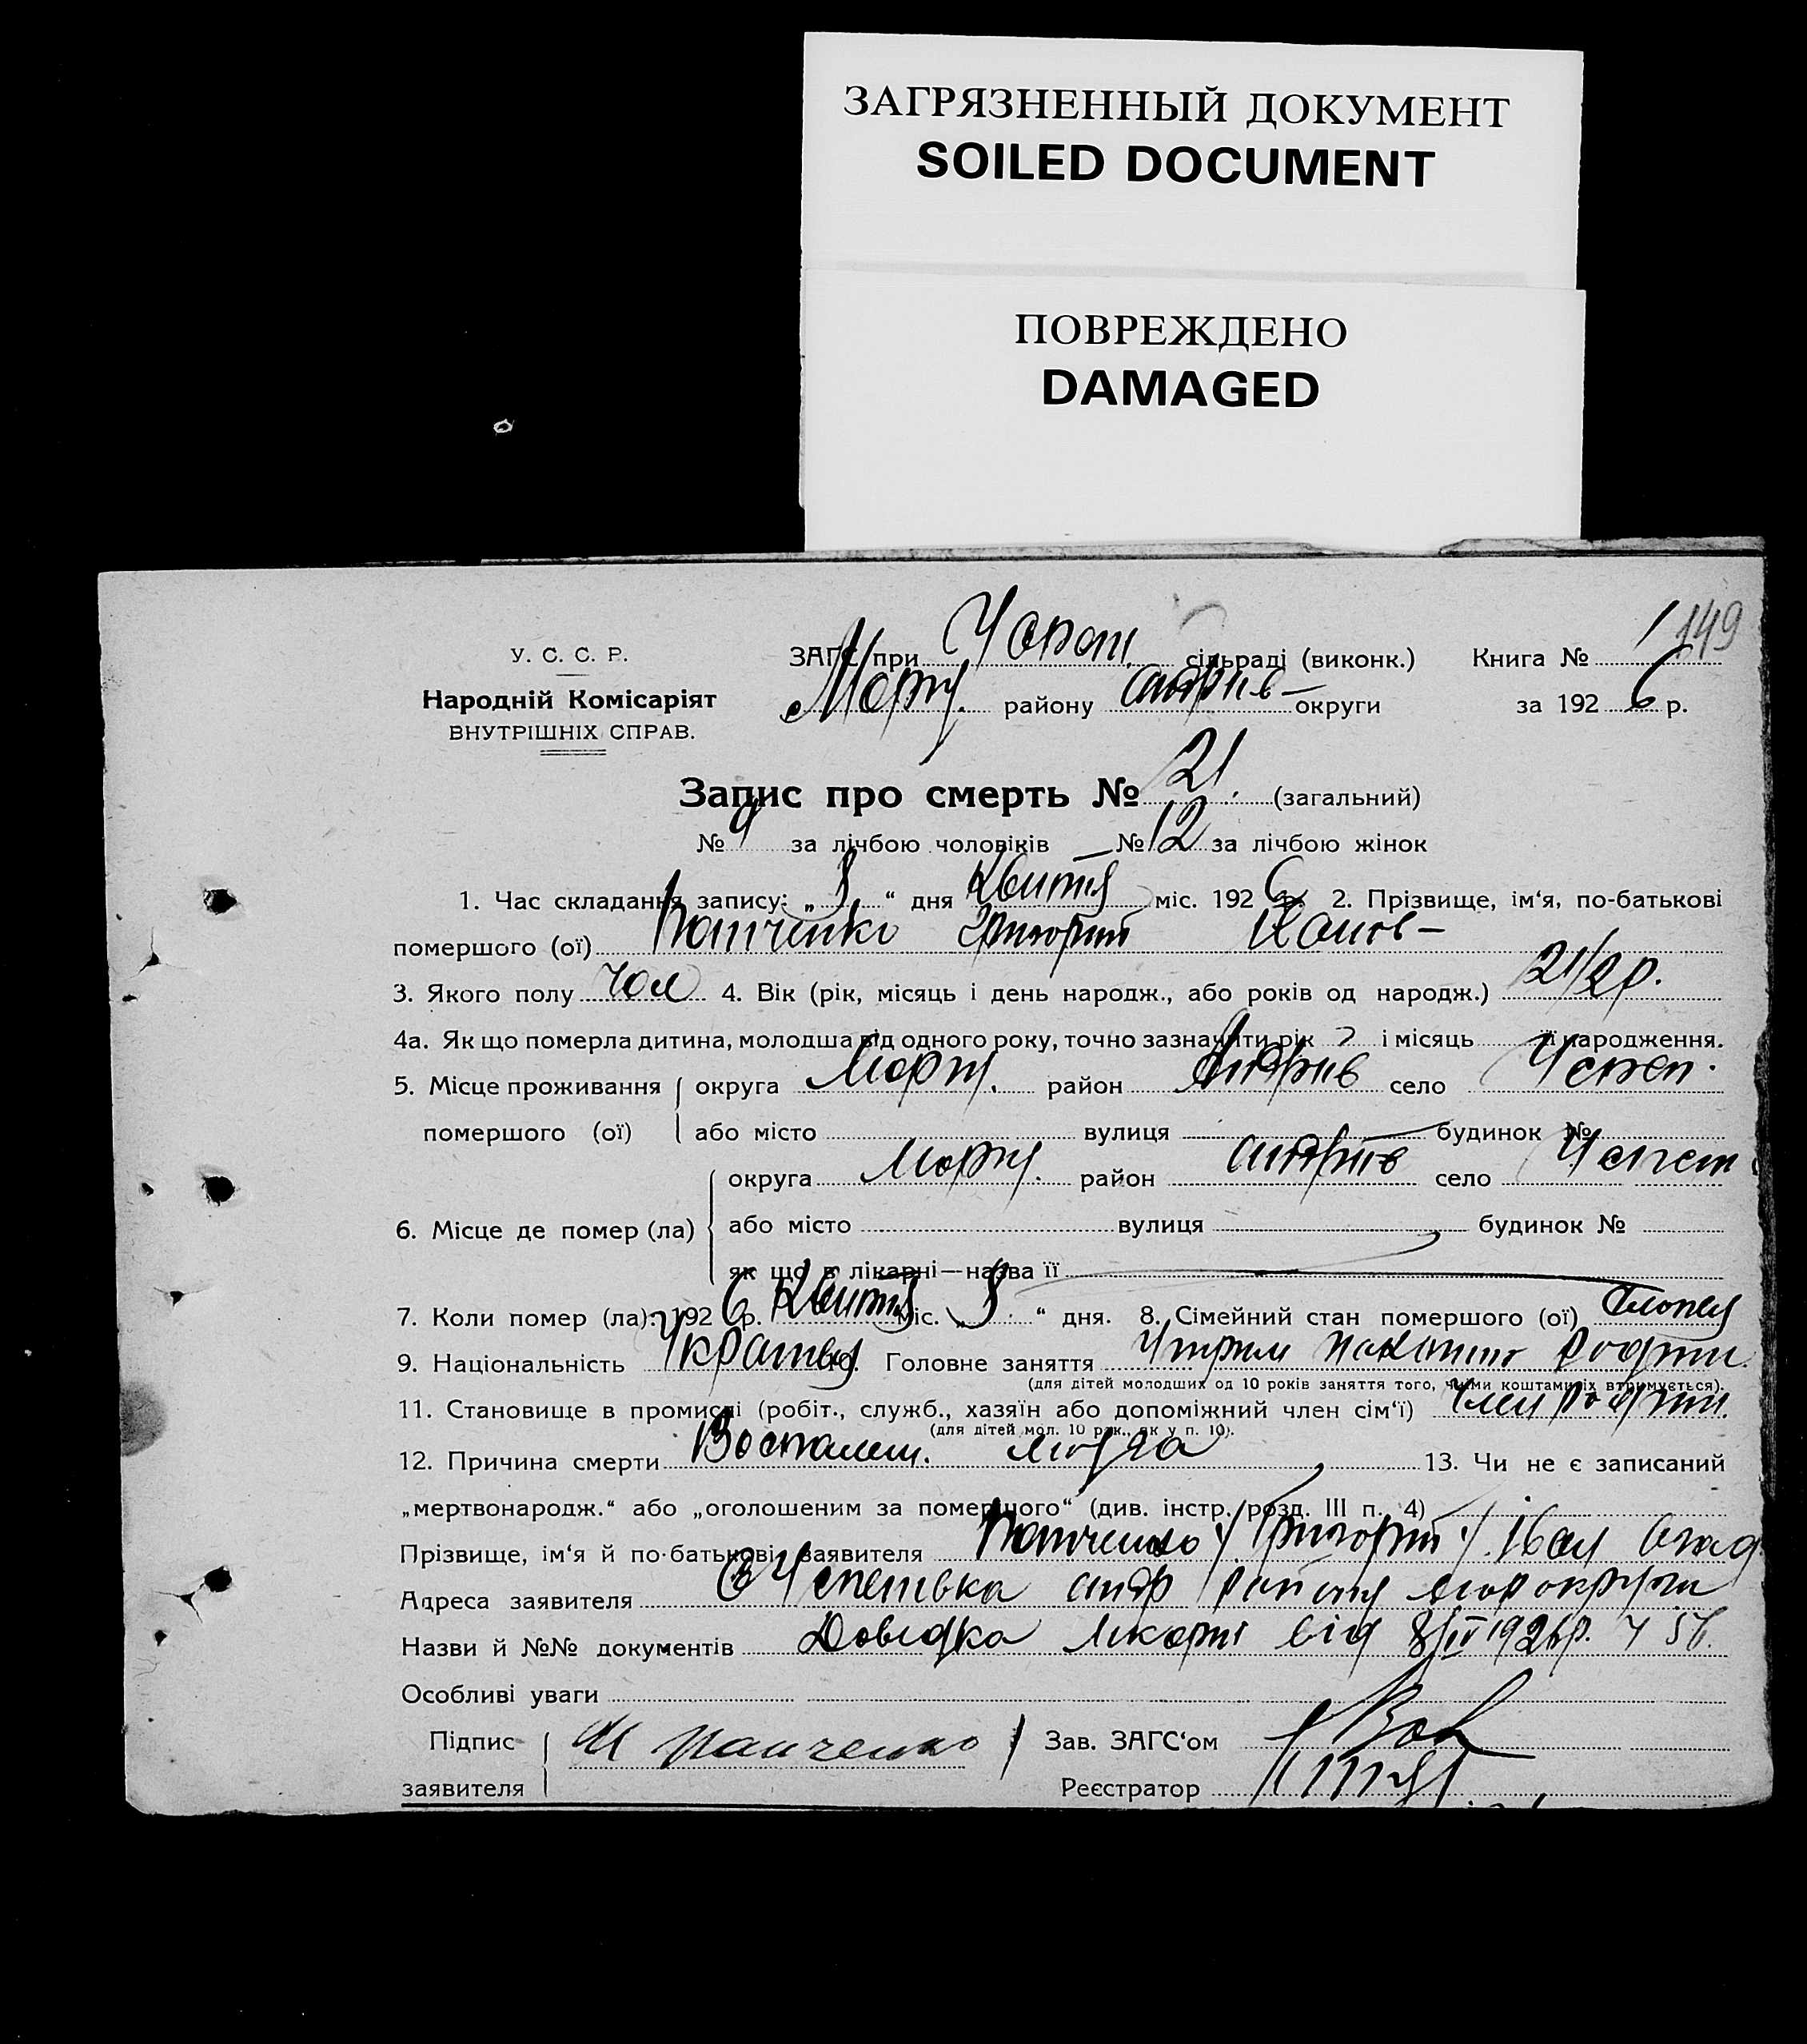 ЗАГРЯЗНЕННЫЙ ДОКУМЕНТ
SOILED DOCUMENT
ПОВРЕЖДЕНО
DAMAGED
149
У. С. С. Р. ЗАГС при сільраді (виконк.) Книга № 1
Народній Комісаріят Маріу. району округи за 1926 р.
ВНУТРІШНІХ СПРАВ.
Запис про смерть № 21. (загальний)
№ 9 за лічбою чоловіків № 12 за лічбою жінок
1. Час складання запису: „ 8 “ дня Квітня міс. 1926 р. 2. Прізвище, ім‘я, по-батькові
помершого (ої) Панченко Григорий Іванов—
3. Якого полу чол 4. Вік (рік, місяць і день народж., або років од народж.) 2 1/2 р.
4а. Як що померла дитина, молодша від одного року, точно зазначити рік і місяць її народження.
5. Місце проживання округа Маріу. район село
помершого (ої) або місто вулиця будинок №
округа Маріу. район село
6. Місце де помер (ла) або місто вулиця будинок №
як що в лікарні—назва її
7. Коли помер (ла): 1926 р. Квітня міс. „ 8 “ дня. 8. Сімейний стан помершого (ої)
9. Національність 10. Головне заняття Утрим
(для дітей молодших од 10 років заняття того, чиїми коштами їх втримується).
11. Становище в промислі (робіт., служб., хазяїн або допоміжний член сім‘ї) член родини.
(для дітей мол. 10 рок., як у п. 10).
12. Причина смерти Воспален. 13. Чи не є записаний
„мертвонародж.“ або „оголошеним за помершого“ (див. інстр. розд. III п. 4)
Прізвище, ім‘я й по-батькові заявителя Панченко Григорий
Адреса заявителя району
Назви й №№ документів Довідка лікарні від 8/IV 1926р.
Особливі уваги
Підпис Панченко Зав. ЗАГС‘ом
заявителя Реєстратор